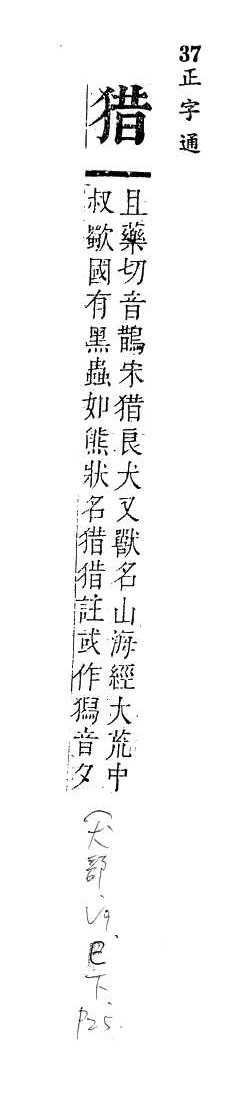 37正字通
猎
且藥切音鵲宋猎良犬又獸名山海經大荒中
叔歜國有黑蟲如熊狀名猎猎註或作㹱音夕
(犬部,V9,巳下,P25.